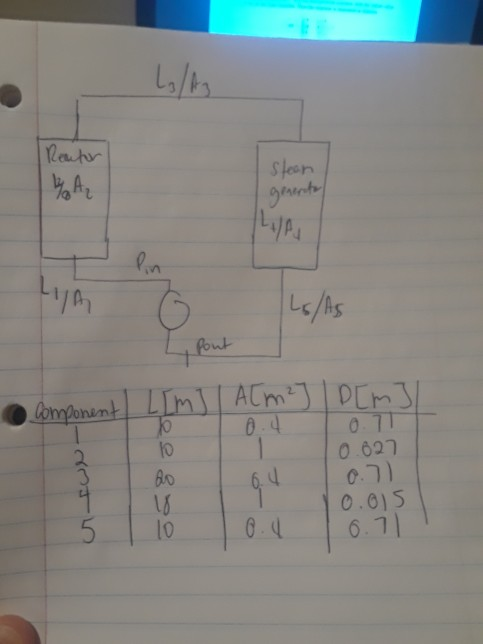 L3/A3
Reactor
A2
Steam
generator
L4/A4
Pin
L1/A1
L5/A5
Pout
Component L[m] A[m²] D[m]
1 10 0.4 0.71
2 10 1 0.027
3 20 0.4 0.71
4 18 1 0.015
5 10 0.4 0.71